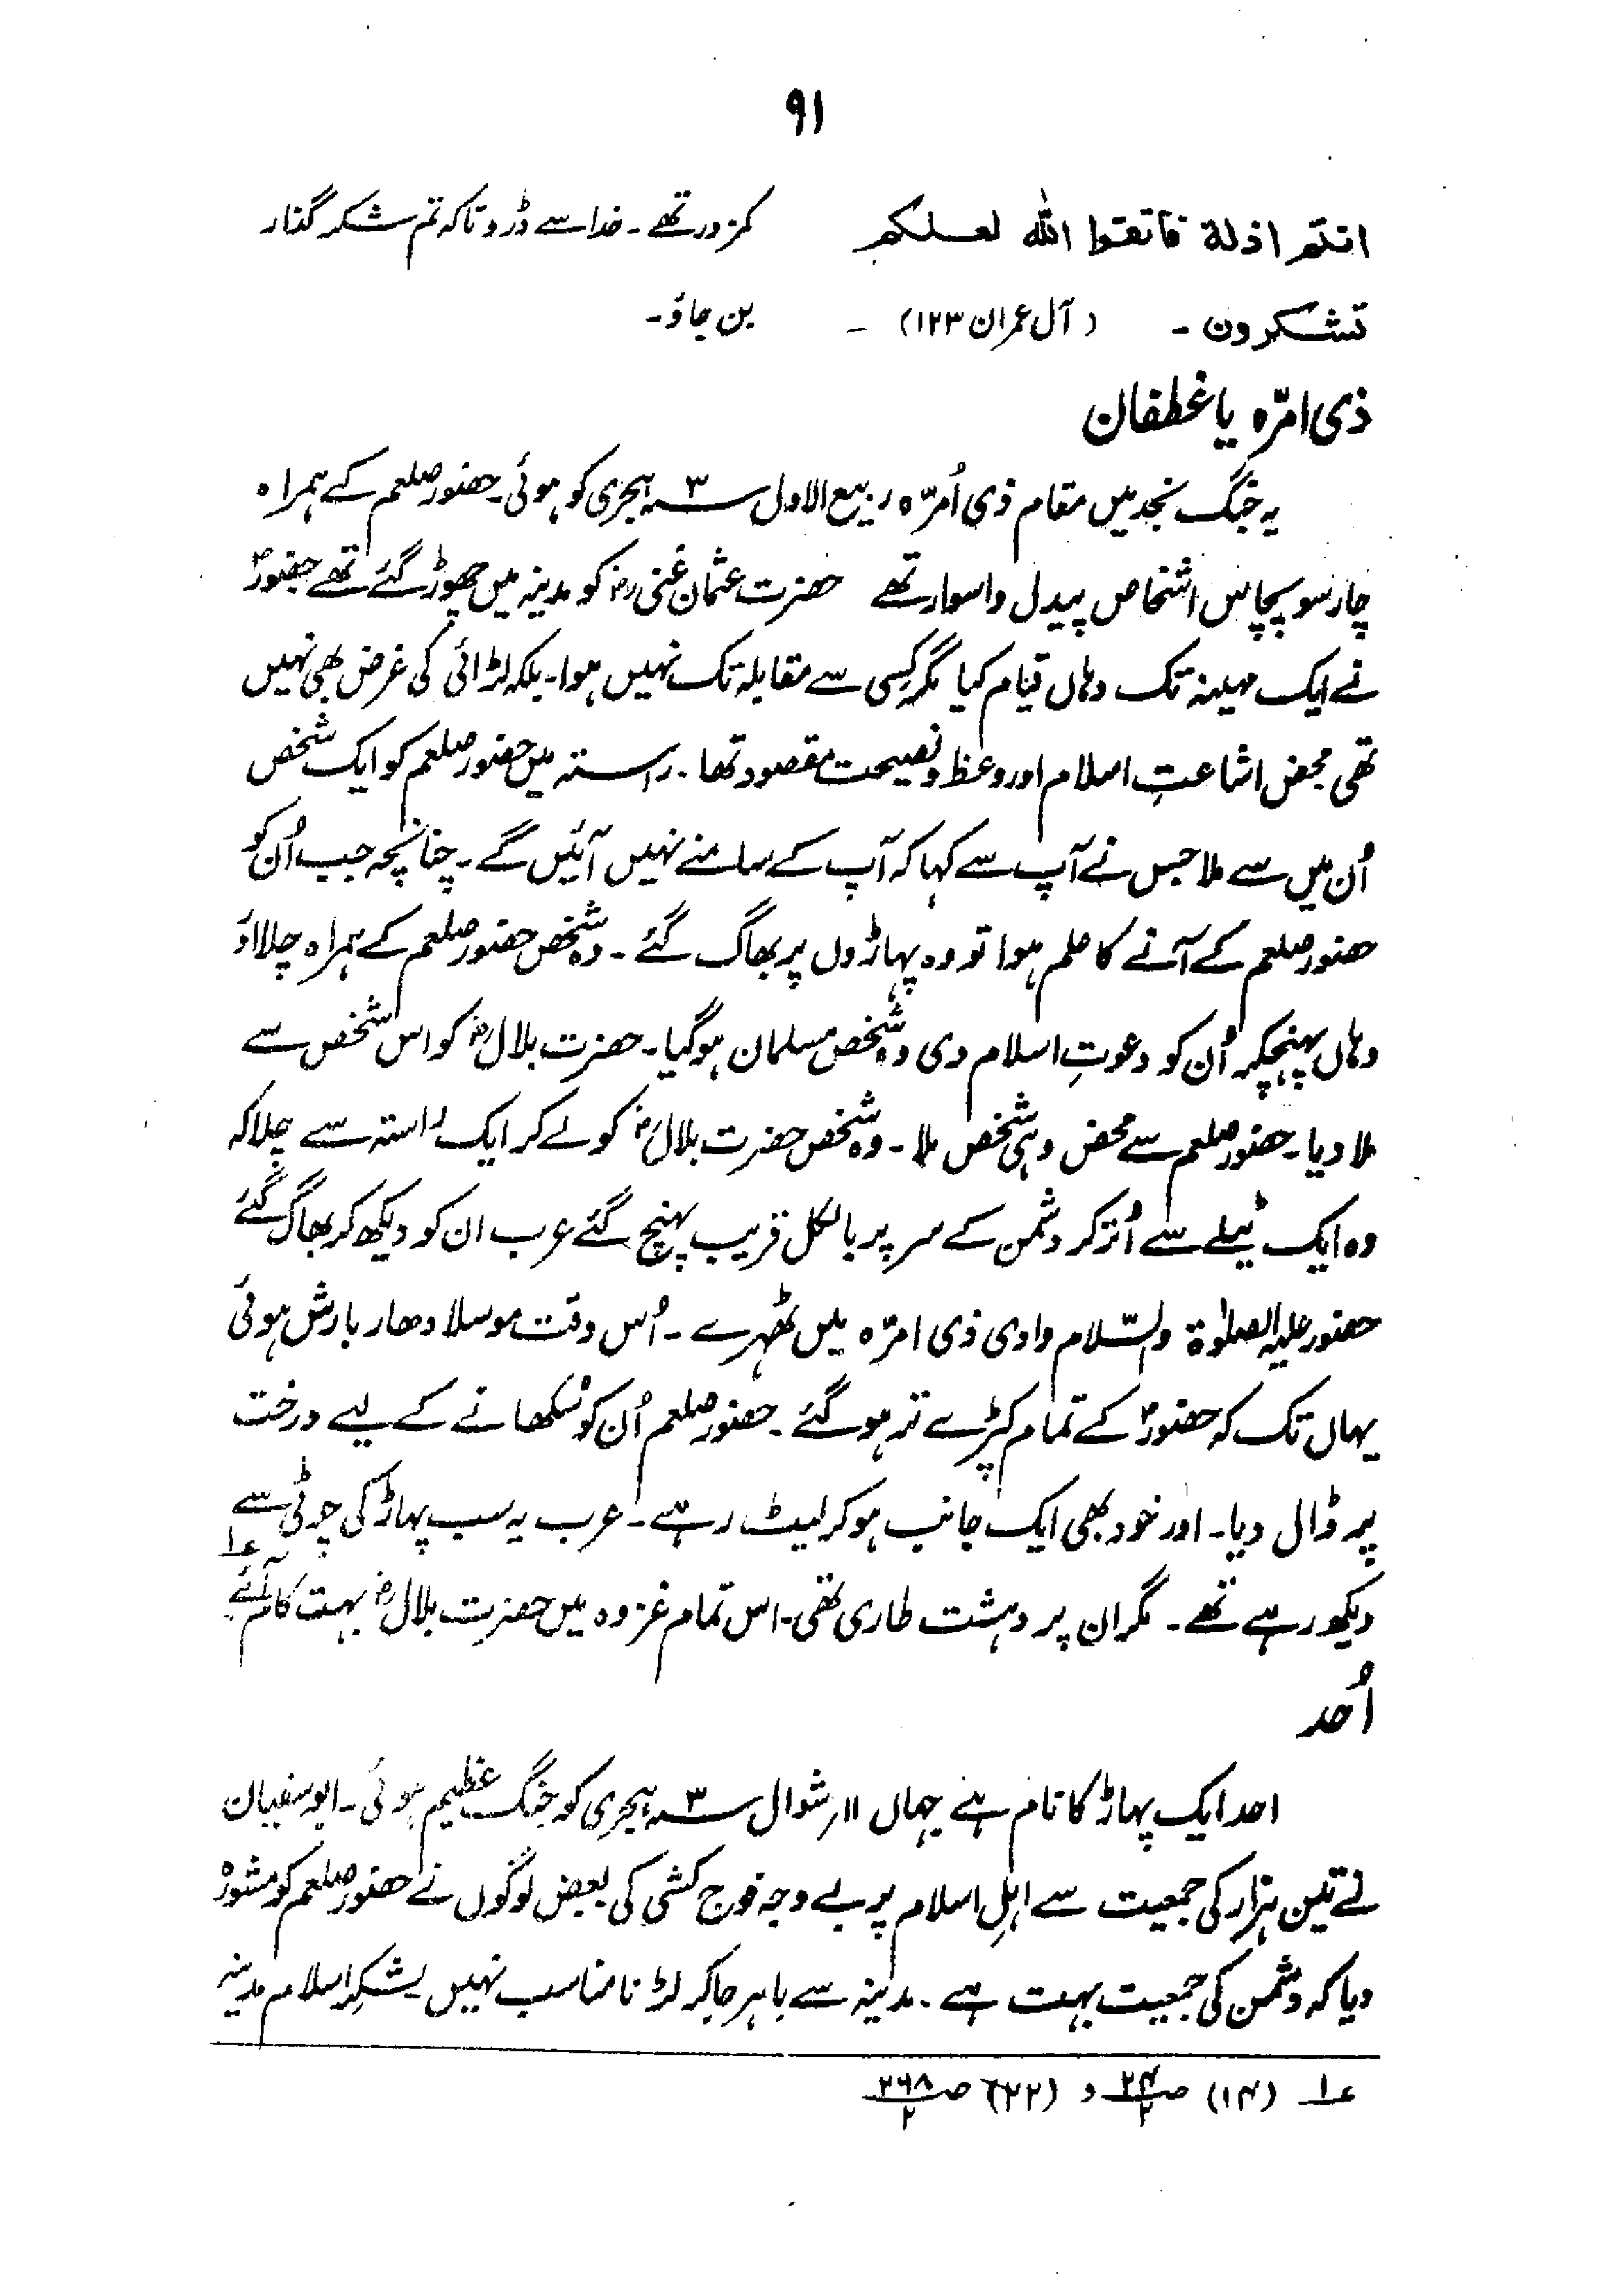 ۹۱
انتم اذلة فاتقوا الله لعلكم کمزور تھے۔ خدا سے ڈرو تاکہ تم شکر گذار
تشكرون - (آل عمران ۱۲۳) - بن جاؤ۔
ذی امرّہ یا غطفان
یہ جنگ نجد میں مقام ذی اُمرّہ ربیع الاول ۳ ہجری کو ہوئی۔ حضور صلعم کے ہمراہ
چار سو پچاس اشخاص پیدل واسوار تھے حضرت عثمان غنی رضؓ کو مدینہ میں چھوڑ گئے تھے حضورؐ
نے ایک مہینہ تک وہاں قیام کیا مگر کسی سے مقابلہ تک نہیں ہوا۔ بلکہ لڑائی کی غرض بھی نہیں
تھی محض اشاعتِ اسلام اور وعظ و نصیحت مقصود تھا۔ راستہ میں حضور صلعم کو ایک شخص
اُن میں سے ملا جس نے آپ سے کہا کہ آپ کے سامنے نہیں آئیں گے۔ چنانچہ جب اُن کو
حضور صلعم کے آنے کا علم ہوا تو وہ پہاڑوں پر بھاگ گئے۔ وہ شخص حضور صلعم کے ہمراہ چلا اؤ
وہاں پہنچکر اُن کو دعوتِ اسلام دی وہ شخص مسلمان ہوگیا۔ حضرت بلالؓ کو اس شخص سے
ملا دیا۔ حضور صلعم سے محض وہی شخص ملا۔ وہ شخص حضرت بلالؓ کو لے کر ایک راستہ سے چلا کہ
وہ ایک ٹیلے سے اُتر کر دشمن کے سر پر بالکل قریب پہنچ گئے عرب ان کو دیکھ کر بھاگ گئے
حضور علیہ الصلوٰة والسّلام وادی ذی امرّہ میں ٹھہرے۔ اُس وقت موسلا دھار بارش ہوئی
یہاں تک کہ حضورؐ کے تمام کپڑے تر ہو گئے۔ حضور صلعم اُن کو سُکھانے کے لیے درخت
پر ڈال دیا۔ اور خود بھی ایک جانب ہو کر لیٹ رہے۔ عرب یہ سب پہاڑ کی چوٹی سے
دیکھ رہے تھے۔ مگر ان پر دہشت طاری تھی۔ اس تمام غزوہ میں حضرت بلالؓ بہت کام آئے ع۱
اُحد
احد ایک پہاڑ کا نام ہے جہاں ۱۱ر شوال ۳ ہجری کو جنگ عظیم ہوئی۔ ابو سفیان
نے تین ہزار کی جمعیت سے اہلِ اسلام پر بے وجہ فوج کشی کی بعض لوگوں نے حضور صلعم کو مشورہ
دیا کہ دشمن کی جمعیت بہت ہے۔ مدینہ سے باہر جاکر لڑنا مناسب نہیں لشکرِ اسلام مدینہ
ع۱ (۱۴) ص ۲۴/۲ و (۲۲) ص ۲۶۸/۲